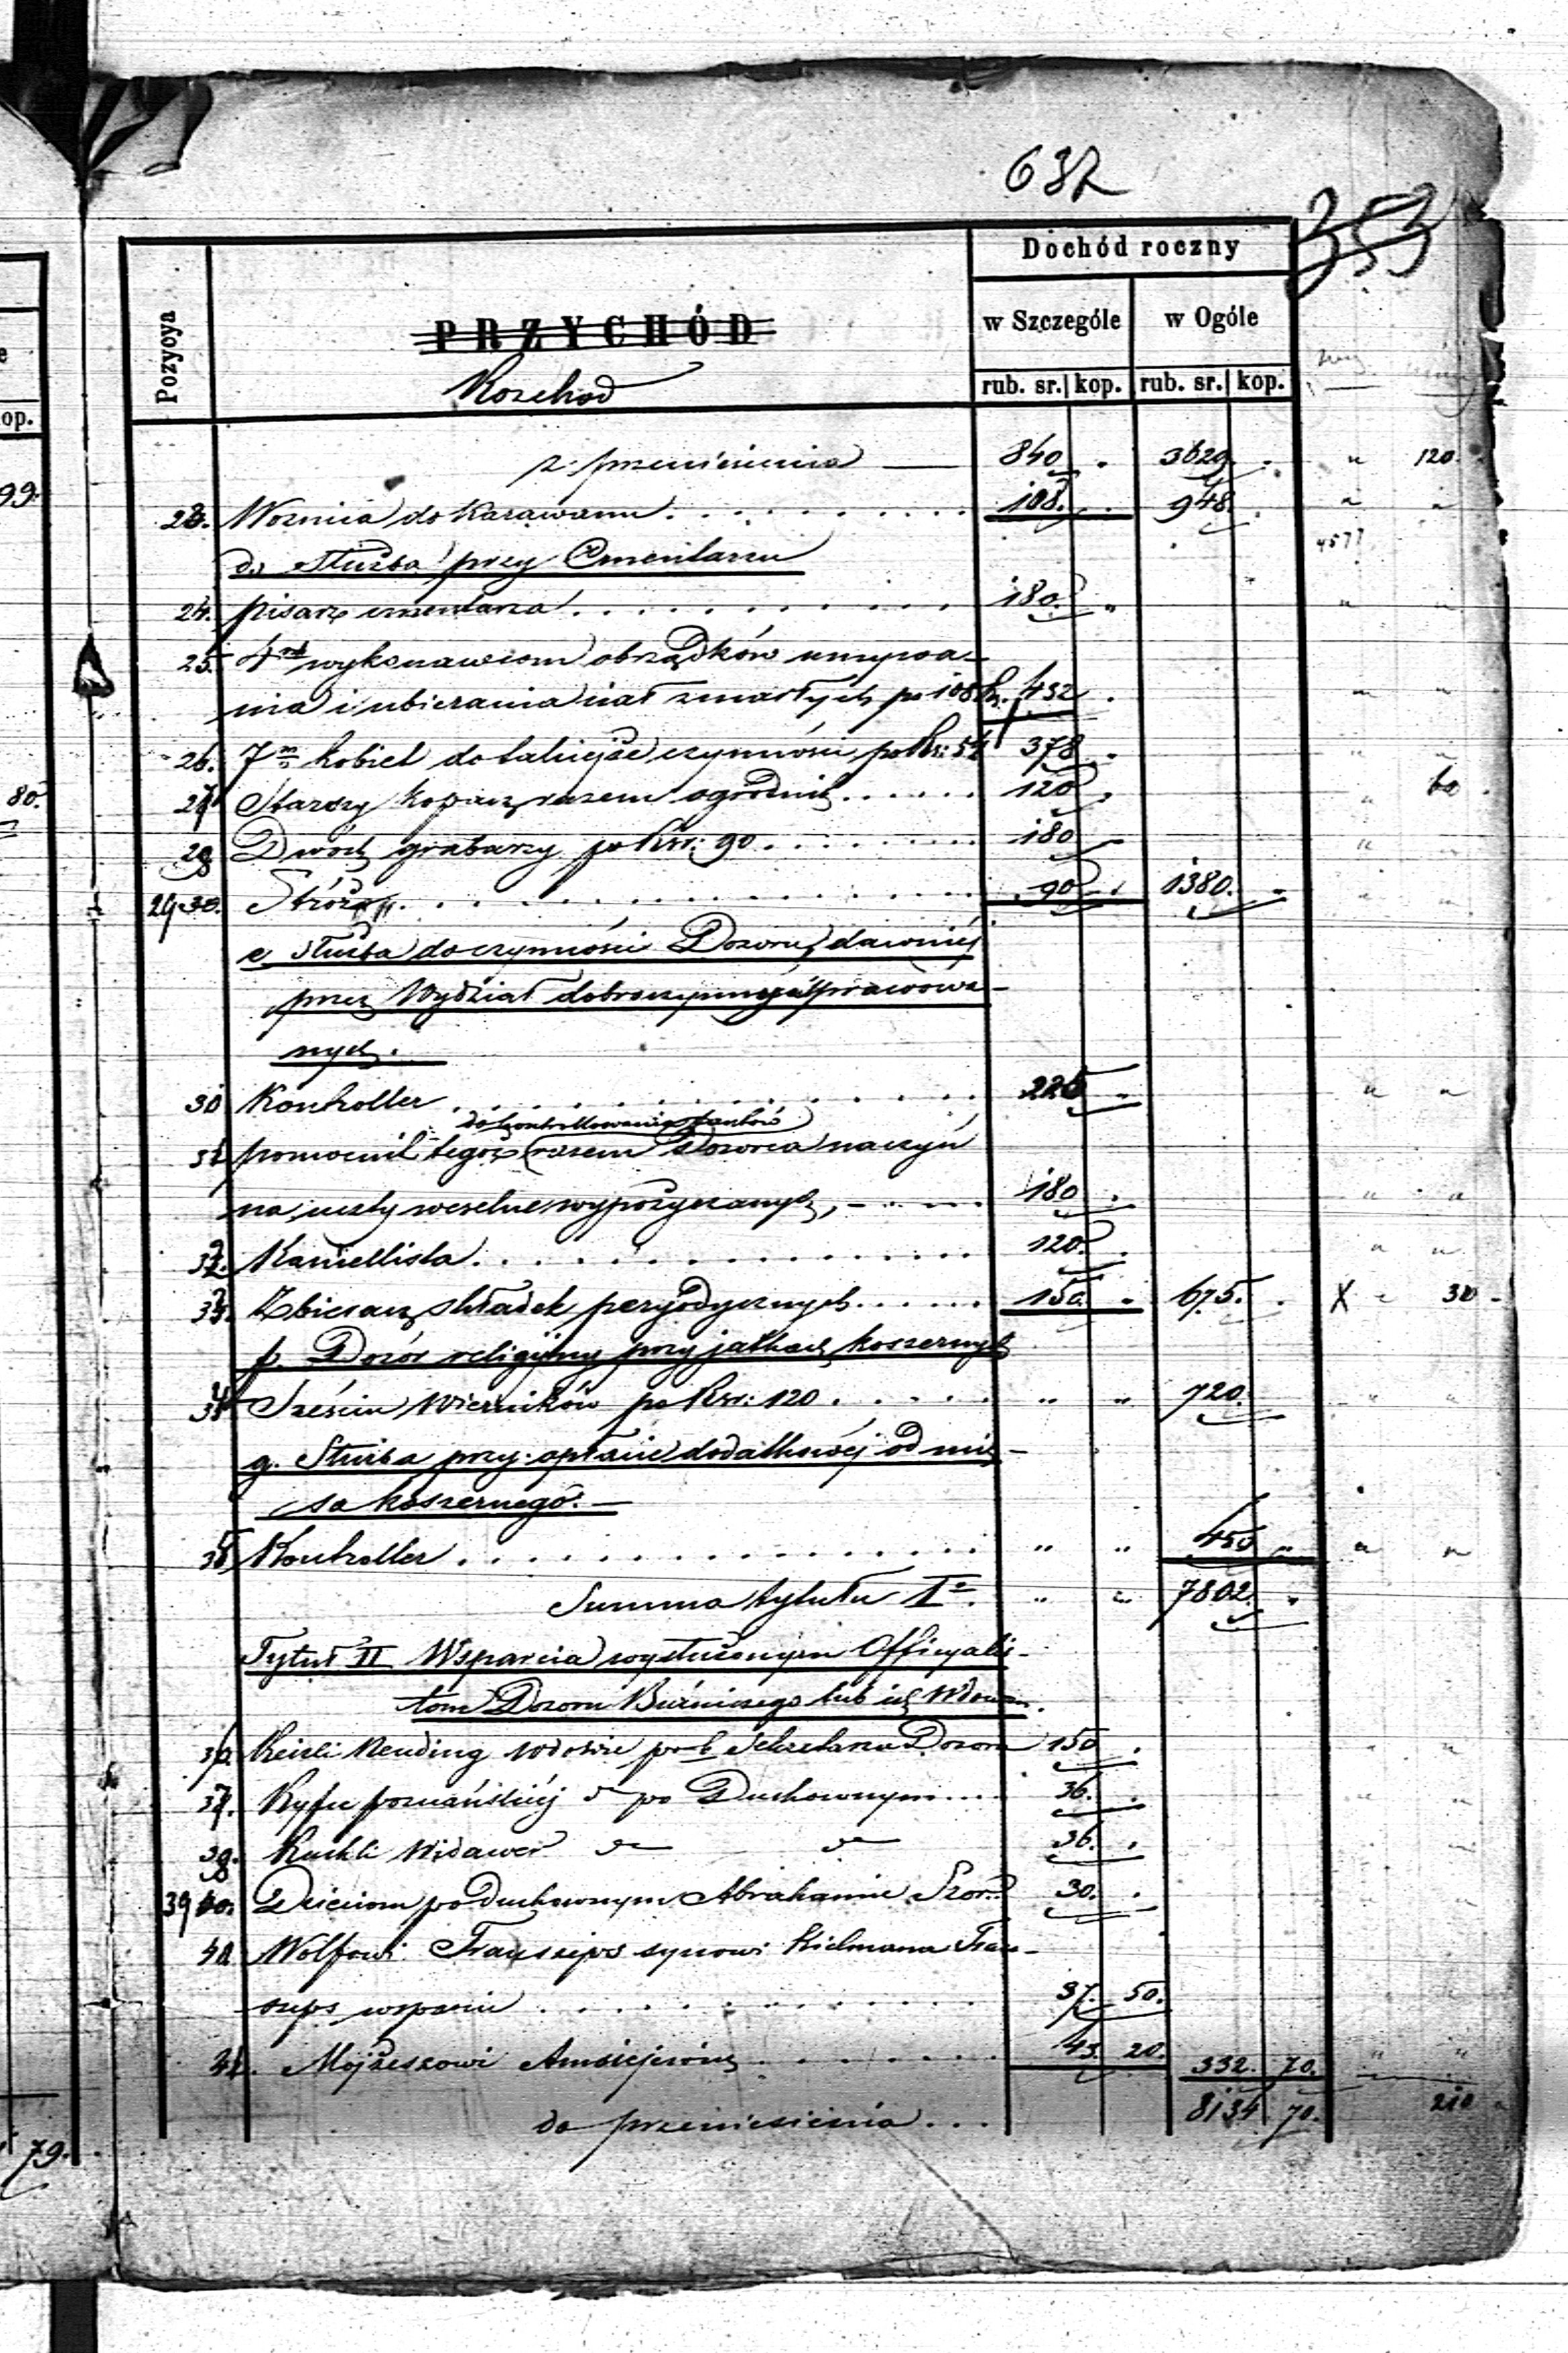 632
353
Dochód roczny
Pozycya PRZYCHÓD w Szczególe w Ogóle
Rozchód rub. sr. kop. rub. sr. kop.
z przeniesienia — 840 . 3629 . " 120.
23. Woźnica do Karawanu . . . 108. . 948. . " "
d. Służba przy Cmentarzu
4577
24. pisarz cmentarza . . . 180. " " "
25. 4m wykonawcom obrządków umywa-
nia i ubierania ciał zmarłych po 108 Rs. 432 . " "
26. 7m kobiet do takiejże czynności po Rs: 54 378 . " "
27 Starszy kopacz razem ogrodnik . . . 120 . " 60 .
28 Dwóch grabarzy po Rsr: 90 . . . 180 " "
29 30. Stróż . . . 90 . 1380. "
e. Służba do czynności Dozoru, dawniéj
przez Wydział dobroczynny sprawowa-
nych.
30 Kontroller . . . 225 " " "
do kontrollowania fantów
31 pomocnik tegoż razem Dozorca naczyń
na uczty weselne wypożyczanych, 180 . " "
32. Kancellista . . . 120. . " "
33. Zbieracz składek peryodycznych . . . 150. . 675. . X " 30 -
f. Dozór religijny przy jatkach koszernych
34 Sześciu Wierników po Rsr: 120 . . . " " 720. " "
g. Służba przy opłacie dodatkowéj od mię-
sa koszernego. —
35 Kontroller . . . " " 450 " " "
Summa tytułu I° . " " 7802. "
Tytuł II Wsparcia wysłużonym Officyalis-
tom Dozoru Bóżniczego lub ich Wdowom.
36. Reizli Neuding wdowie po b. Sekretarzu Dozoru 150 .
37. Ryfce poznańskiéj do po Duchownym . . . 36. .
38. Ruchli Widawer do do 36. .
39 40. Dzieciom po duchownym Abrahamie Szor 30. .
40 Wolfowi Frauszeps synowi Kielmana Frau-
szeps wsparcia . . . 37. 50.
41. Mojżeszowi Amsiejewicz . . . 43. 20. 332. 70. " "
do przeniesienia . . . 8134 70. 210
99.
80.
79.
op.